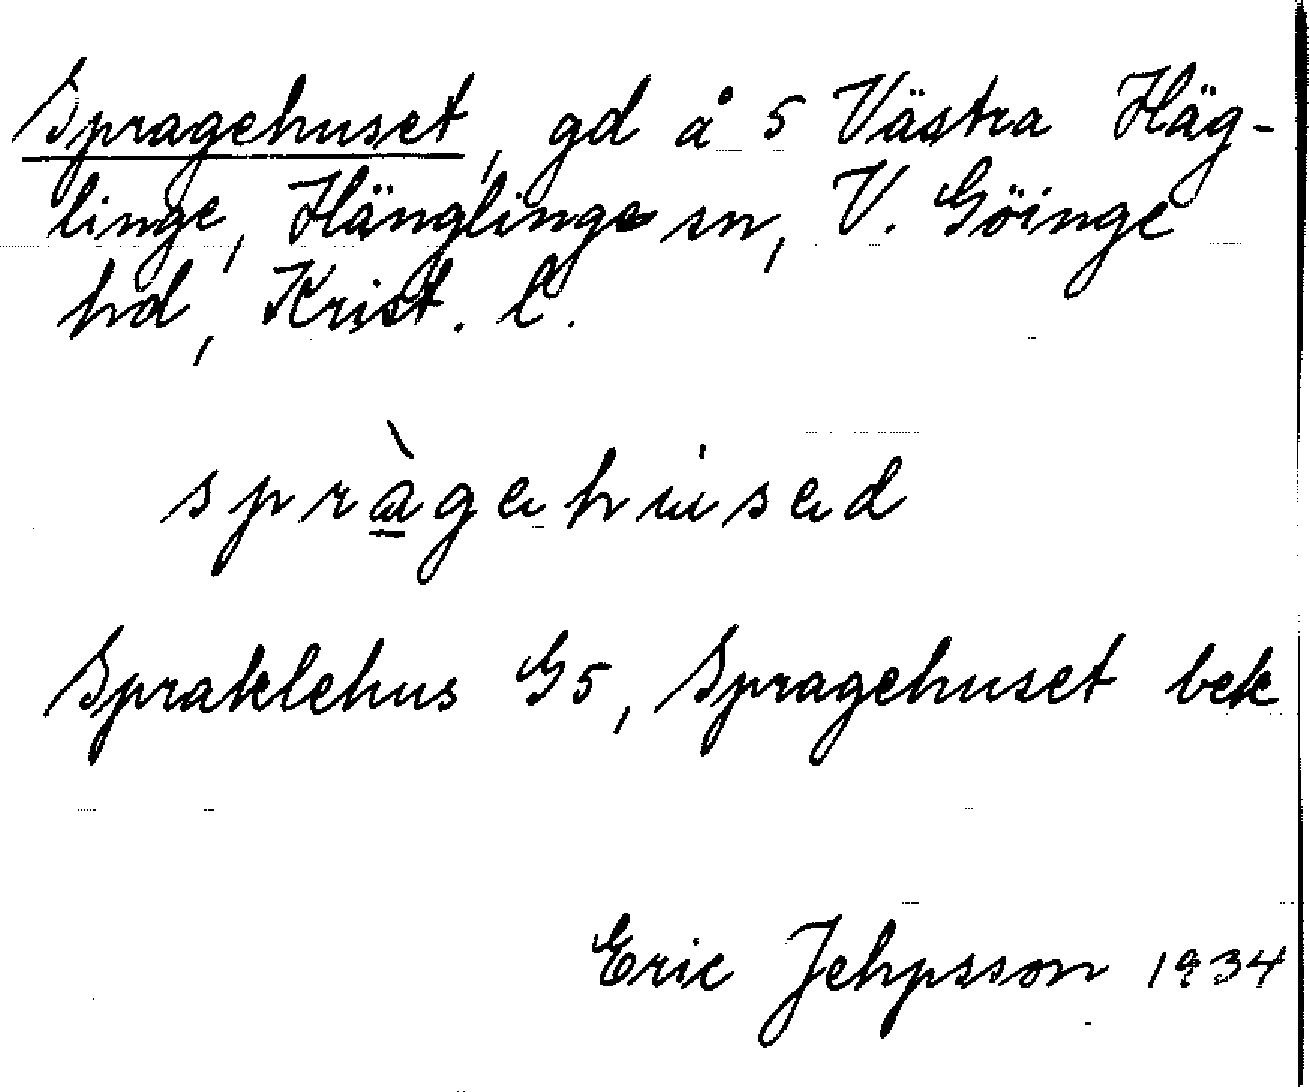 Spragehuset, gd å 5 Västra Häg-
linge, Hänglinge sn, V. Göinge
hd, Krist. l.
spràgehu̇sed
Spraklehus G5, Spragehuset bek
Eric Jehpsson 1934